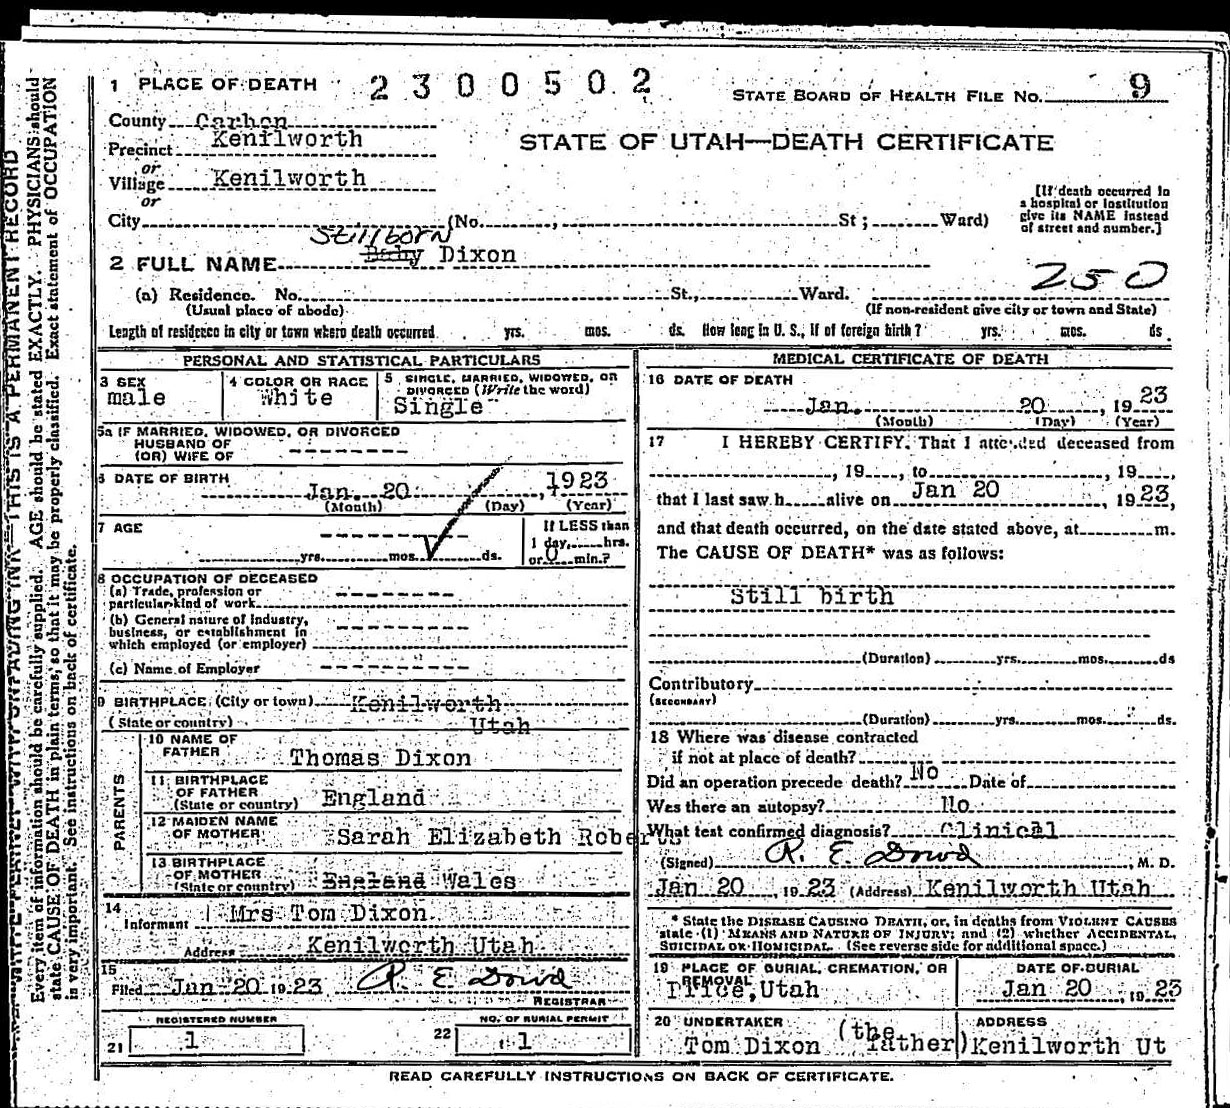 1 PLACE OF DEATH 2300502 STATE BOARD OF HEALTH FILE NO. 9
County Carbon
Precinct Kenilworth
STATE OF UTAH—DEATH CERTIFICATE
or
Village Kenilworth
or
[If death occurred in
a hospital or institution
give its NAME instead
of street and number.]
City (No. , St ; Ward)
Stillborn
2 FULL NAME Baby Dixon
250
(a) Residence. No. St., Ward.
(Usual place of abode) (If non-resident give city or town and State)
Length of residence in city or town where death occurred yrs. mos. ds. How long in U. S., if of foreign birth? yrs. mos. ds.
PERSONAL AND STATISTICAL PARTICULARS
3 SEX 4 COLOR OR RACE 5 SINGLE, MARRIED, WIDOWED, OR
DIVORCED (Write the word)
male White Single
5a IF MARRIED, WIDOWED, OR DIVORCED
HUSBAND OF
(OR) WIFE OF
6 DATE OF BIRTH
Jan. 20 , 1923
(Month) (Day) (Year)
7 AGE If LESS than
1 day, hrs.
yrs. mos. ds. or 0 min.?
8 OCCUPATION OF DECEASED
(a) Trade, profession or
particular kind of work
(b) General nature of industry,
business, or establishment in
which employed (or employer)
(c) Name of Employer
9 BIRTHPLACE (City or town) Kenilworth
(State or country) Utah
PARENTS
10 NAME OF
FATHER Thomas Dixon
11 BIRTHPLACE
OF FATHER
(State or country) England
12 MAIDEN NAME
OF MOTHER Sarah Elizabeth Roberts
13 BIRTHPLACE
OF MOTHER
(State or country) England Wales
14
Informant Mrs Tom Dixon
Address Kenilworth Utah
15
Filed Jan 20 1923 R. E. Dowd
REGISTRAR
REGISTERED NUMBER NO. OF BURIAL PERMIT
21 1 22 1
MEDICAL CERTIFICATE OF DEATH
16 DATE OF DEATH
Jan. 20 , 1923
(Month) (Day) (Year)
17 I HEREBY CERTIFY, That I attended deceased from
, 19 , to , 19 ,
that I last saw h alive on Jan 20 , 1923,
and that death occurred, on the date stated above, at m.
The CAUSE OF DEATH* was as follows:
Still birth
(Duration) yrs. mos. ds
Contributory
(SECONDARY)
(Duration) yrs. mos. ds.
18 Where was disease contracted
if not at place of death?
Did an operation precede death? No Date of
Was there an autopsy? No
What test confirmed diagnosis? Clinical
(Signed) R. E. Dowd , M. D.
Jan 20 1923 (Address) Kenilworth Utah
* State the DISEASE CAUSING DEATH, or, in deaths from VIOLENT CAUSES
state (1) MEANS AND NATURE OF INJURY; and (2) whether ACCIDENTAL,
SUICIDAL OR HOMICIDAL. (See reverse side for additional space.)
19 PLACE OF BURIAL, CREMATION, OR
REMOVAL
Price, Utah
DATE OF BURIAL
Jan 20 , 1923
20 UNDERTAKER ADDRESS
Tom Dixon (the father) Kenilworth Ut
READ CAREFULLY INSTRUCTIONS ON BACK OF CERTIFICATE.
THIS IS A PERMANENT RECORD
Every item of information should be carefully supplied. AGE should be stated EXACTLY. PHYSICIANS should
state CAUSE OF DEATH in plain terms, so that it may be properly classified. Exact statement of OCCUPATION
is very important. See instructions on back of certificate.